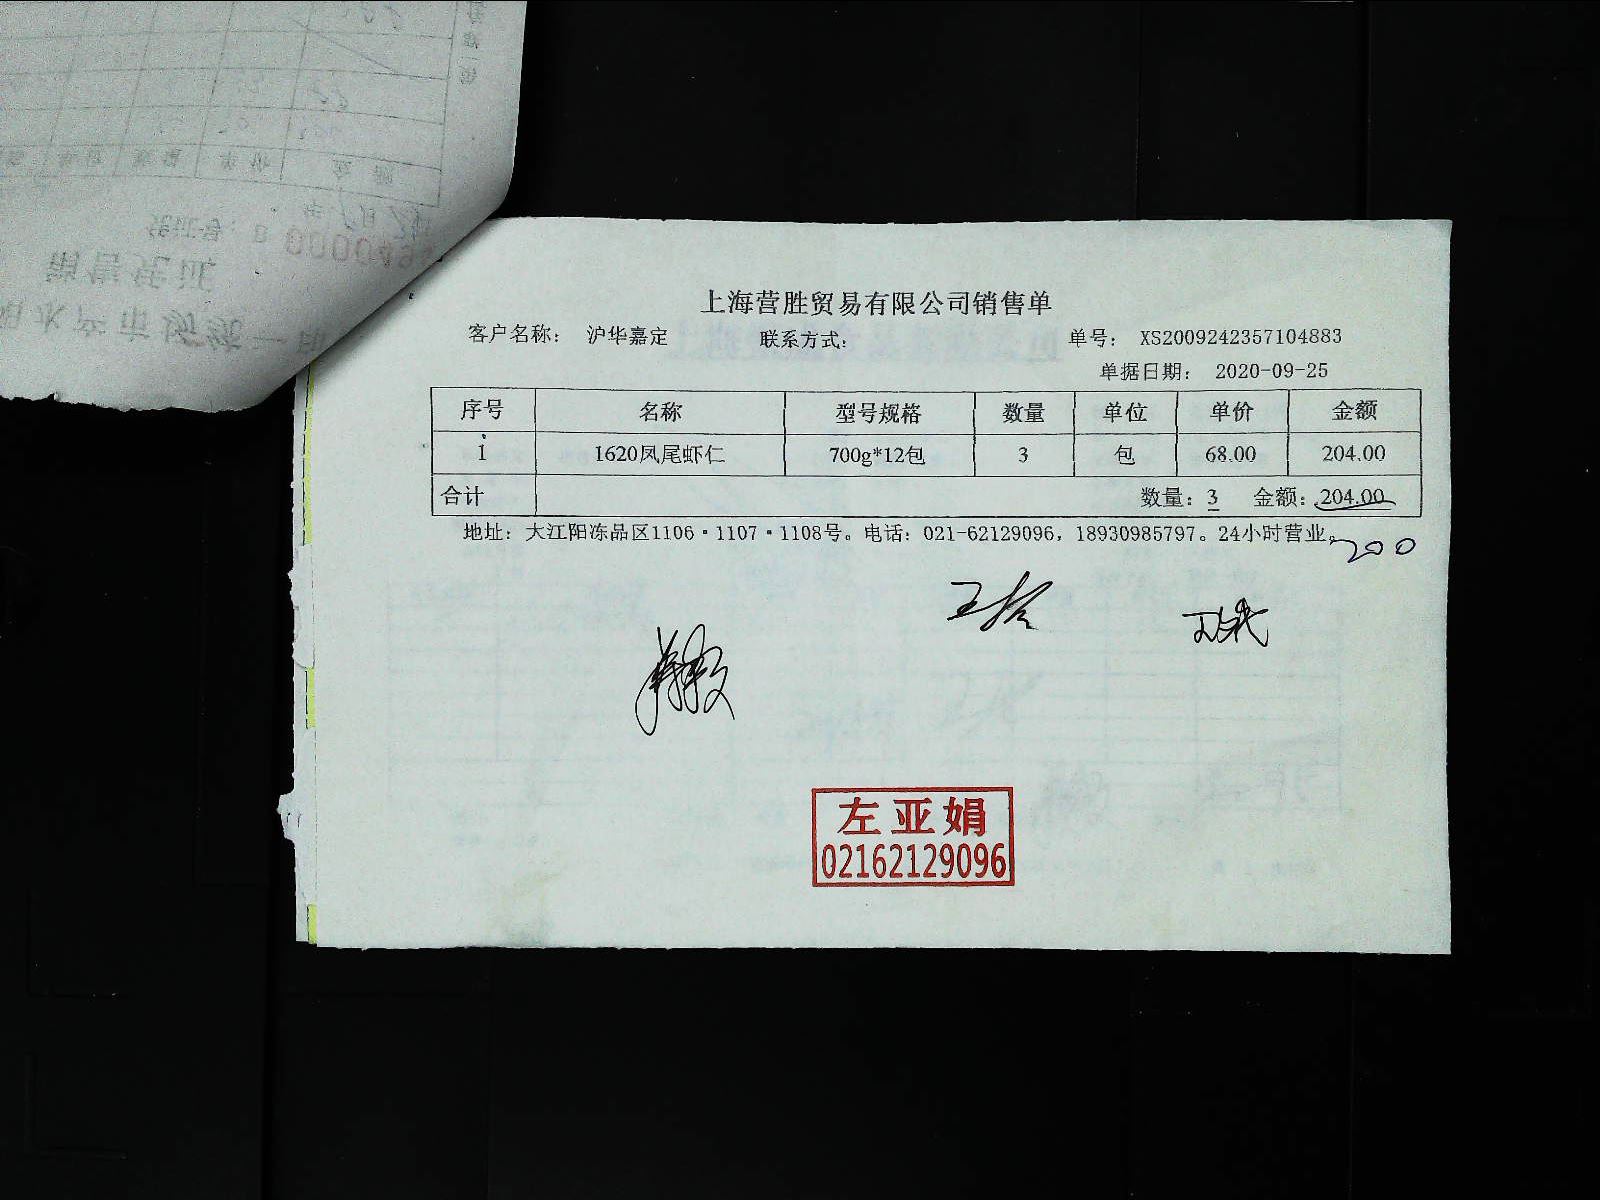 上海营胜贸易有限公司销售单
客户名称： 沪华嘉定 联系方式： 单号： XS2009242357104883
单据日期： 2020-09-25
序号 名称 型号规格 数量 单位 单价 金额
1 1620凤尾虾仁 700g*12包 3 包 68.00 204.00
合计 数量：3 金额：204.00
地址：大江阳冻品区1106·1107·1108号。电话：021-62129096，18930985797。24小时营业。
200
左亚娟
02162129096